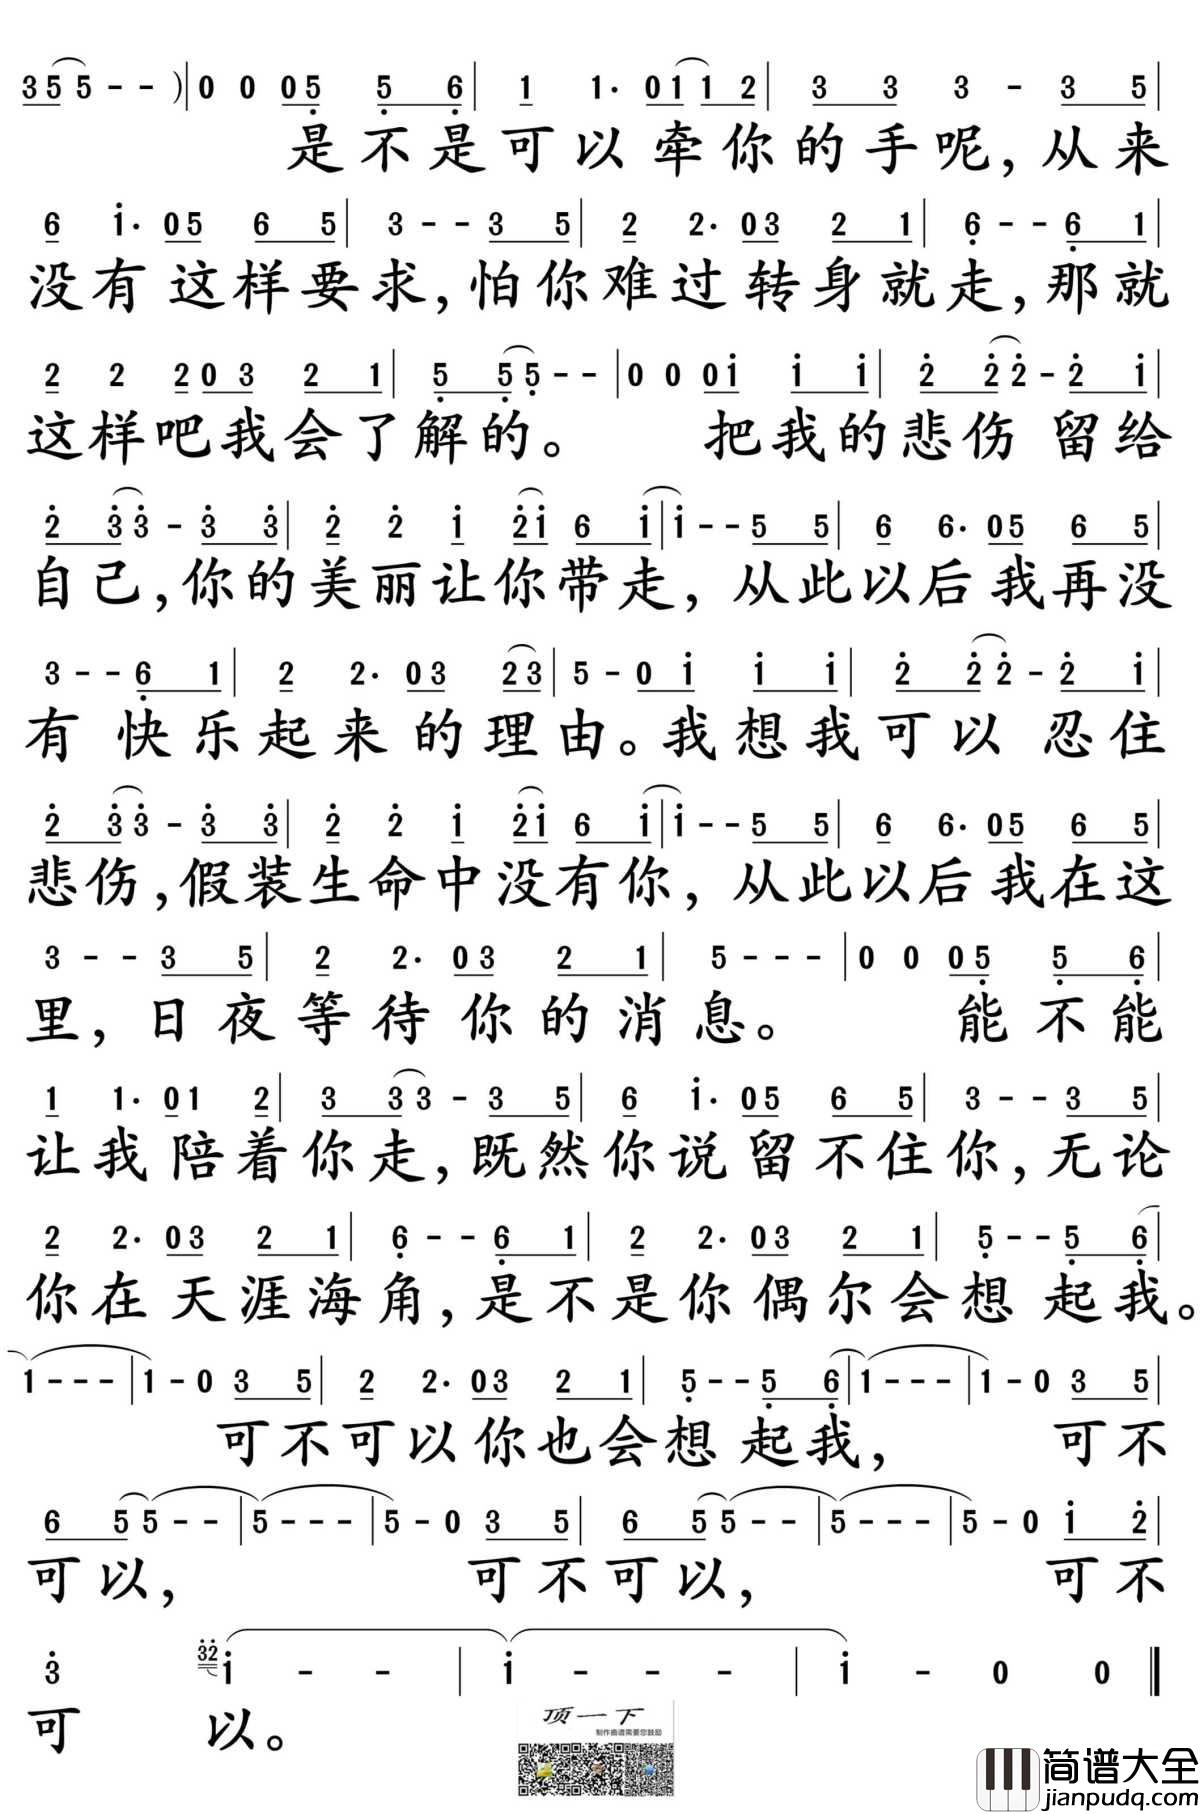 3 5 5 - - ) | 0 0 0 5 5 6 | 1 1· 0 1 1 2 | 3 3 3 - 3 5 |
是不是可以牵你的手呢,从来
6 1· 0 5 6 5 | 3 - - 3 5 | 2 2· 0 3 2 1 | 6 - - 6 1 |
没有这样要求,怕你难过转身就走,那就
2 2 2 0 3 2 1 | 5 5 5 - - | 0 0 0 1 1 1 | 2 2 2 - 2 1 |
这样吧我会了解的。 把我的悲伤留给
2 3 3 - 3 3 | 2 2 1 2 1 6 1 | 1 - - 5 5 | 6 6· 0 5 6 5 |
自己,你的美丽让你带走,从此以后我再没
3 - - 6 1 | 2 2· 0 3 2 3 | 5 - 0 1 1 1 | 2 2 2 - 2 1 |
有快乐起来的理由。我想我可以忍住
2 3 3 - 3 3 | 2 2 1 2 1 6 1 | 1 - - 5 5 | 6 6· 0 5 6 5 |
悲伤,假装生命中没有你,从此以后我在这
3 - - 3 5 | 2 2· 0 3 2 1 | 5 - - - | 0 0 0 5 5 6 |
里,日夜等待你的消息。 能不能
1 1· 0 1 2 | 3 3 3 - 3 5 | 6 1· 0 5 6 5 | 3 - - 3 5 |
让我陪着你走,既然你说留不住你,无论
2 2· 0 3 2 1 | 6 - - 6 1 | 2 2· 0 3 2 1 | 5 - - 5 6 |
你在天涯海角,是不是你偶尔会想起我。
1 - - - | 1 - 0 3 5 | 2 2· 0 3 2 1 | 5 - - 5 6 | 1 - - - | 1 - 0 3 5 |
可不可以你也会想起我, 可不
6 5 5 - - | 5 - - - | 5 - 0 3 5 | 6 5 5 - - | 5 - - - | 5 - 0 1 2 |
可以, 可不可以, 可不
3 32 1 - - | 1 - - - | 1 - 0 0 ‖
可 以。
顶一下
制作曲谱需要您鼓励
简谱大全
jianpudq.com